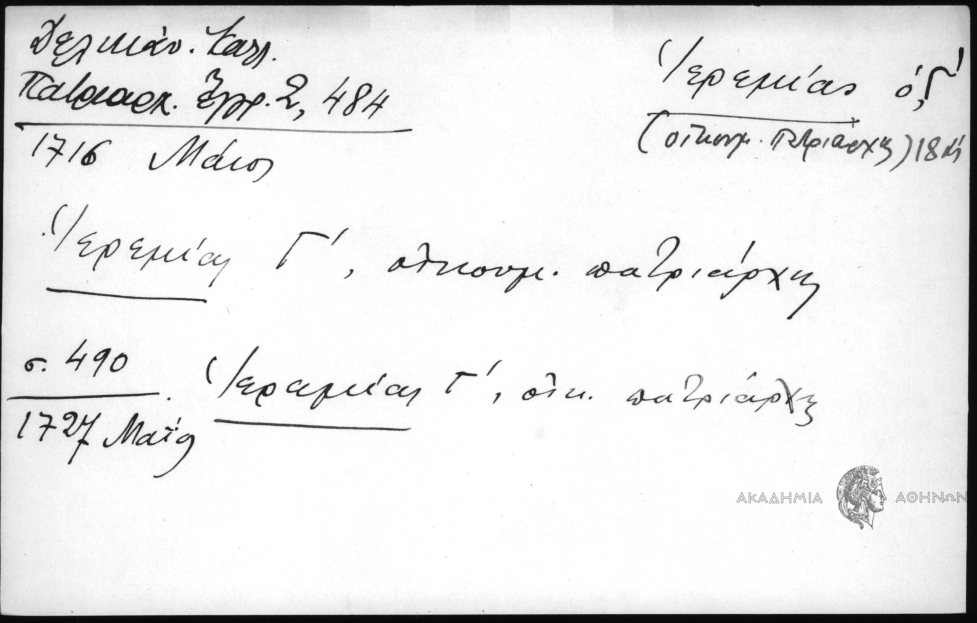 Δελικάν. Κατλ.
Πατριαρχ. Ἐγγρ. 2, 484
1716 Μάιος
Ἱερεμίας ὁ Γ'
(οἰκουμ. Πατριάρχης) 18 αἰ
Ἱερεμίας Γ', οἰκουμ. πατριάρχης
σ. 490
1727 Μαΐο
Ἱερεμίας Γ', οἰκ. πατριάρχης
ΑΚΑΔΗΜΙΑ ΑΘΗΝΩΝ